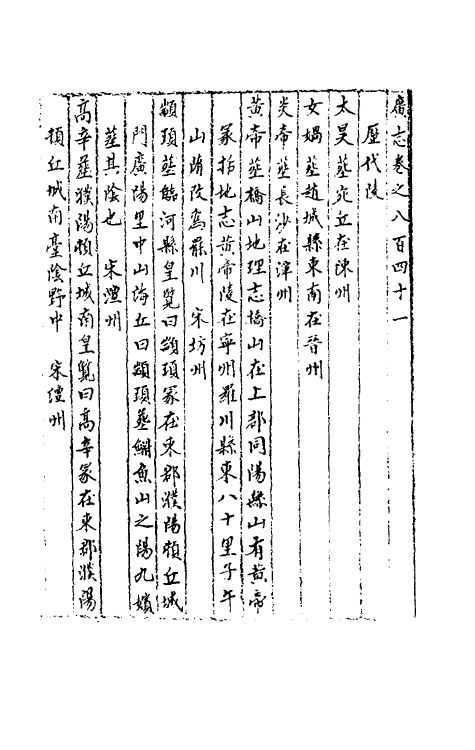 廣志卷之八百四十一
歷代陵
太昊葬宛丘在陳州
女媧葬趙城縣東南在晉州
炎帝葬長沙在潭州
黃帝葬橋山地理志橋山在上郡同陽縣山有黃帝
冢括地志黃帝陵在寧州羅川縣東八十里子午
山隋改為羅川 宋坊州
顓頊葬臨河縣皇覽曰顓頊冢在東郡濮陽頓丘城
門廣陽里中山海丘曰顓頊葬鮒魚山之陽九嬪
葬其陰也 宋澶州
高辛葬濮陽頓丘城南皇覽曰高辛冢在東郡濮陽
頓丘城南臺陰野中 宋澶州